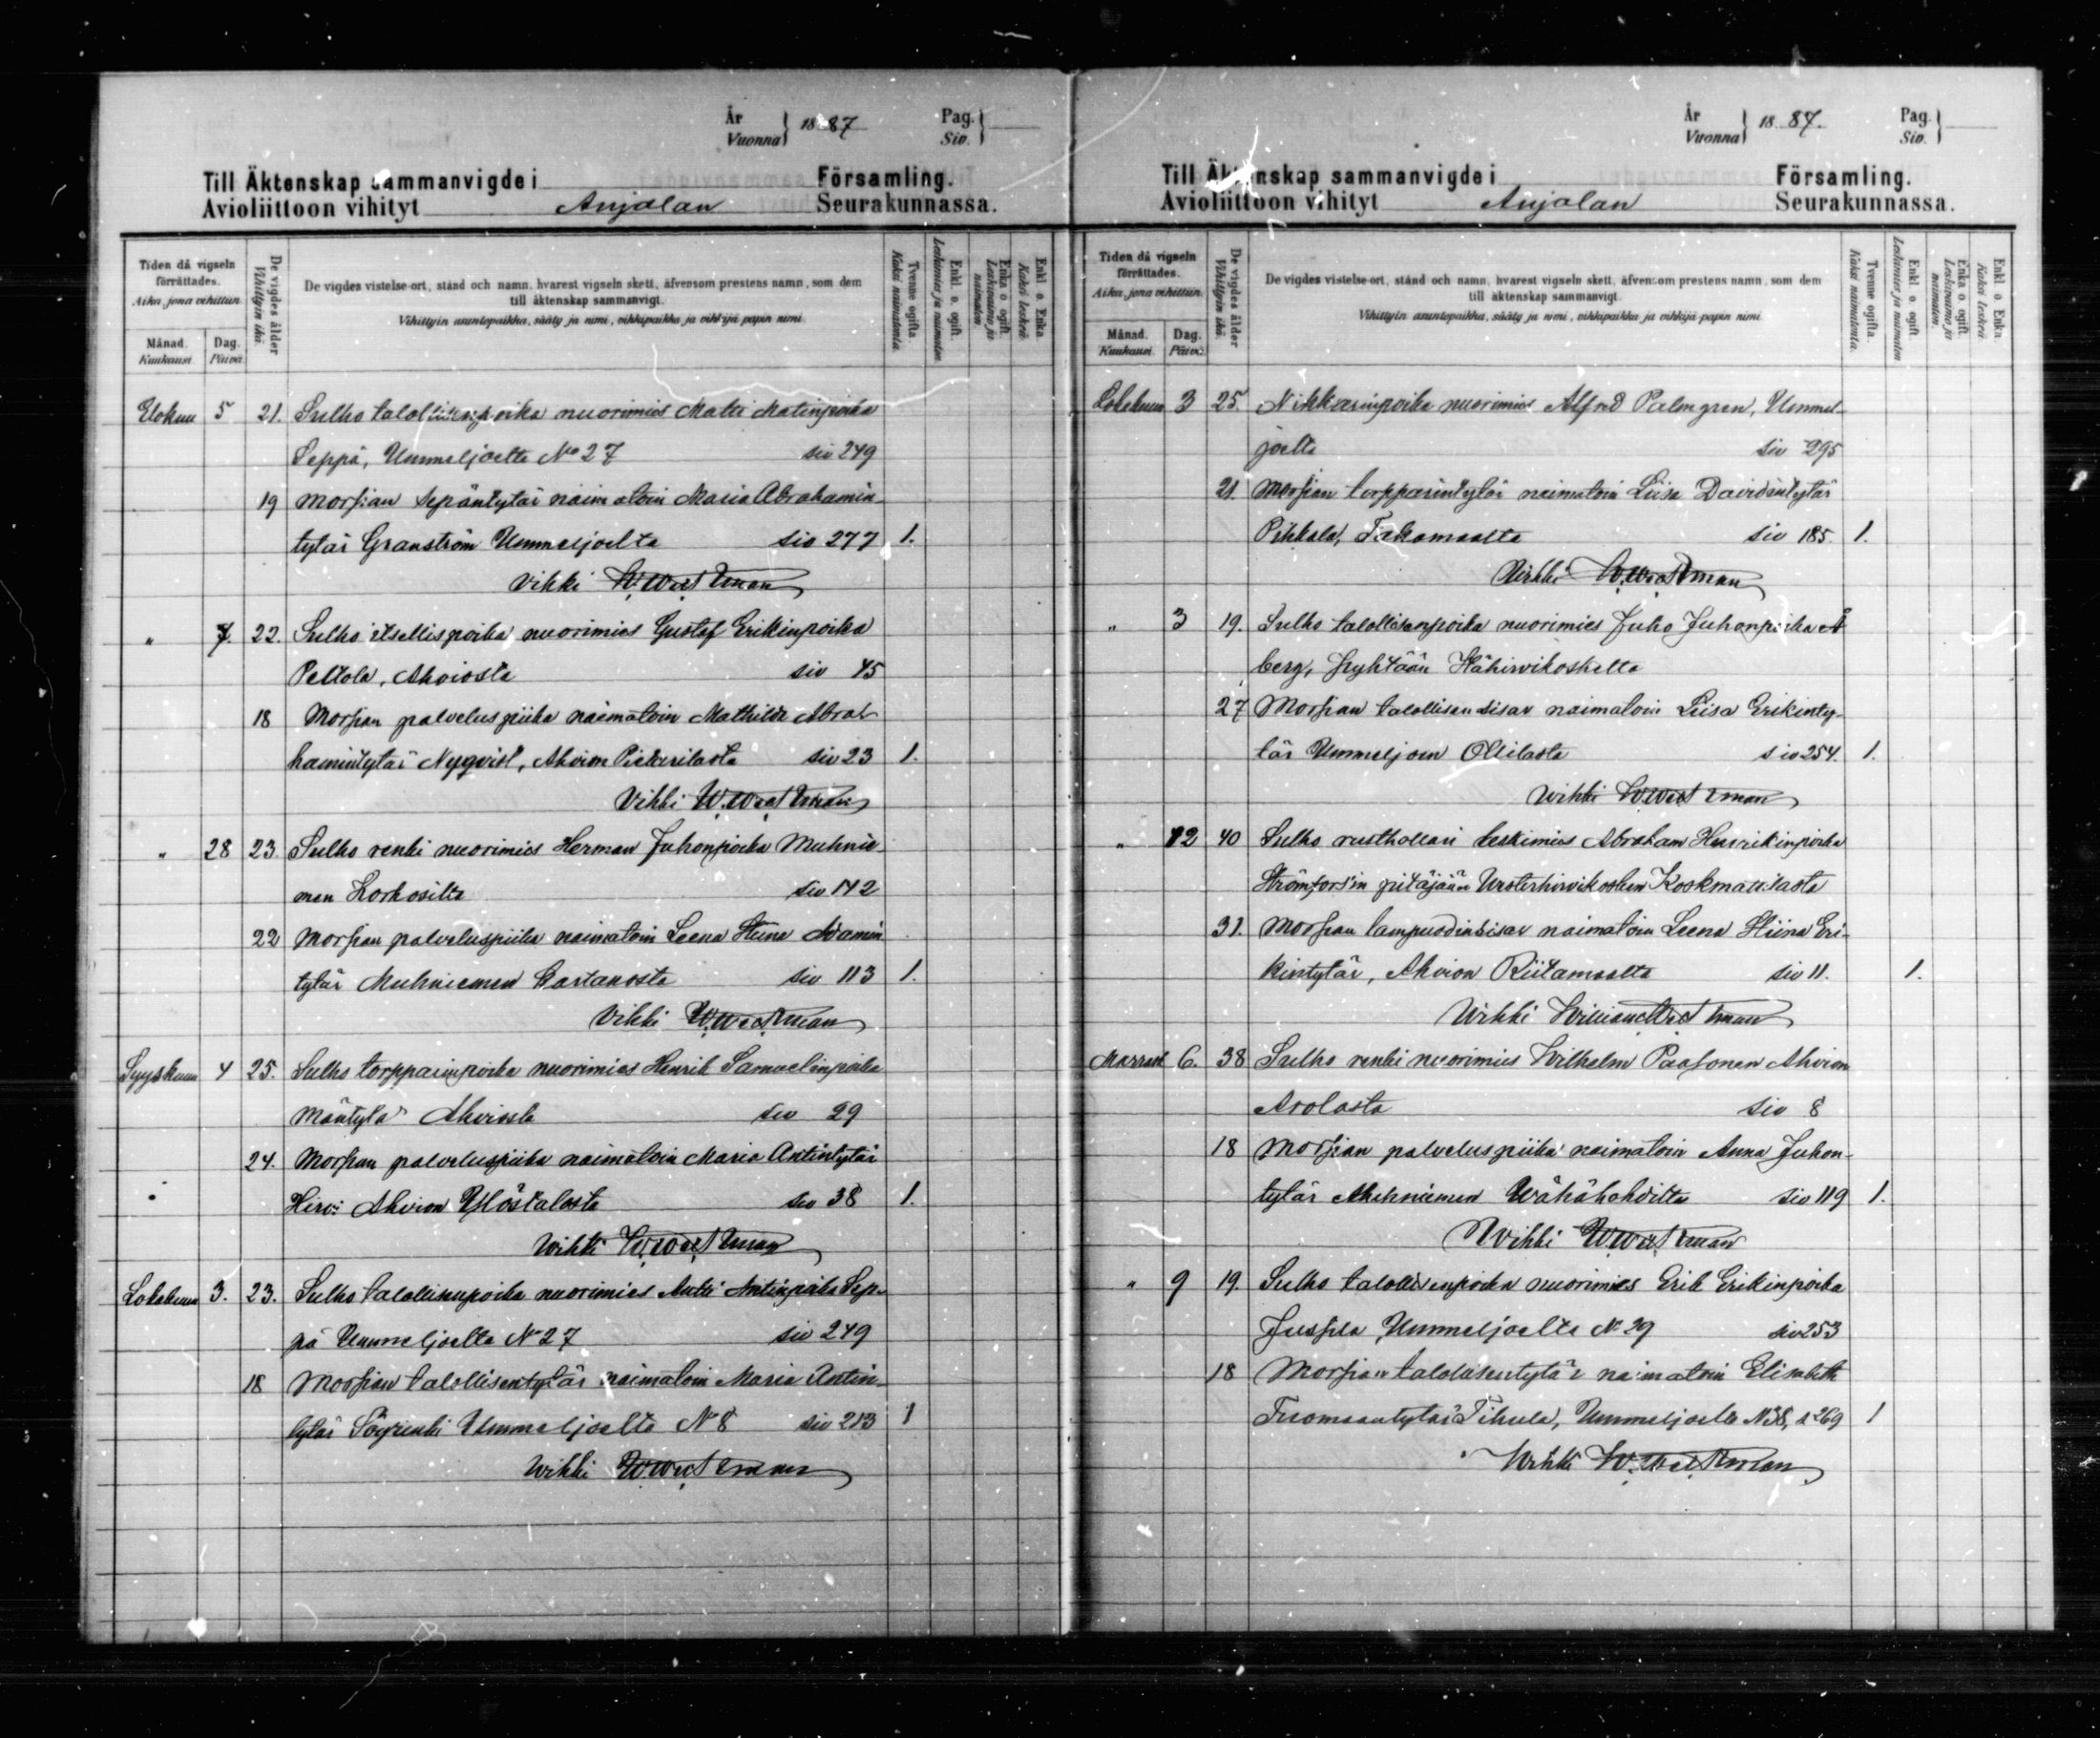 År
Vuonna } 1887 Pag.
Siv. }
Till Äktenskap sammanvigde i Församling.
Avioliittoon vihityt Anjalan Seurakunnassa.
Tiden då vigseln förrättades.
Aika, jona vihittiin
Månad. Kuukausi.
Dag. Päivä.
De vigdes ålder
Vihittyin ikä.
De vigdes vistelse-ort, stånd och namn, hvarest vigseln skett, äfvensom prestens namn, som dem
till äktenskap sammanvigt.
Vihittyin asuntopaikka, sääty ja nimi, vihkipaikka ja vihkijä-papin nimi
Tvenne ogifta
Kaksi naimatonta.
Enkl. o. ogift.
Leskimies ja naimaton
Enka o ogift.
Leskivaimo ja naimaton.
Enkl o. Enka
Kaksi leskeä
Elokuu 5 21. Sulho talollisenpoika nuorimies Matti Matinpoika
Seppä, Ummeljoelta No 27 siv 249
19 Morsian sepäntytär naimatoin Maria Abrahamin
tytär Granström Ummeljoelta siv 277 1.
Vihki W. Westman
" 7. 22. Sulho itsellispoika nuorimies Gustaf Erikinpoika
Peltola, Ahviosta siv 45
18 Morsian palveluspiika naimatoin Mathilda Abra-
hamintytär Nyqvist, Ahvion siv 23 1.
Vihki W. Westman
" 28 23. Sulho renki nuorimies Herman Juhonpoika Muhnie
men siv 142
22 Morsian palveluspiika naimatoin Leena Stiina Adamin
tytär Muhniemen siv 113 1.
Vihki W. Westman
Syyskuu 4 25. Sulho torpparinpoika nuorimies Henrik Samuelinpoika
Mäntylä Ahviosta siv 29
24. Morsian palveluspiika naimatoin Maria Antintytär
Hirvi Ahvion siv 38 1.
Wihki W. Westman
Lokakuu 3. 23. Sulho talollisenpoika nuorimies Antti Antinpoika Sep-
pä Ummeljoelta No 27 siv 249
18 Morsian talollisentytär naimatoin Maria Antin-
tytär Ummeljoelta No 8 siv 213 1
Wihki W. Westman
År
Vuonna } 1887. Pag.
Siv. }
Till Äktenskap sammanvigde i Församling.
Avioliittoon vihityt Anjalan Seurakunnassa.
Tiden då vigseln förrättades.
Aika, jona vihittiin.
Månad. Kuukausi
Dag. Päivä.
De vigdes ålder
Vihittyin ikä.
De vigdes vistelse-ort, stånd och namn, hvarest vigseln skett, äfvensom prestens namn, som dem
till äktenskap sammanvigt.
Vihittyin asuntopaikka, sääty ja nimi, vihkipaikka ja vihkijä-papin nimi
Tvenne ogifta.
Kaksi naimatonta.
Enkl. o. ogift
Leskimies ja naimaton
Enka o. ogift.
Leskivaimo ja naimaton.
Enkl. o. Enka
Kaksi leskeä
Lokakuun 3 25. Nikkarinpoika nuorimies Alfred Palmgren, Ummel-
joelta siv 295
21. Morsian torpparintytär naimatoin Liisa Davidintytär
Pihkala, Takamaalta siv 185 1.
Vihki W. Westman
" 3 19. Sulho talollisenpoika nuorimies Juho Juhonpoika Å
berg, Pyhtään
27 Morsian talollisen sisar naimatoin Liisa Erikinty-
tär Ummeljoen Ollilasta siv 254. 1.
Wihki W. Westman
" 12 40 Sulho rusthollari leskimies Abraham Henrikinpoika
Strömfors'in pitäjään
31. Morsian lampuodin sisar naimatoin Leena Stiina Eri-
kintytär, Ahvion siv 11. 1.
Wihki Westman
Marrask 6. 38 Sulho renki nuorimies Wilhelm Paasonen Ahvion
Arolasta siv 8
18 Morsian palveluspiika naimatoin Anna Juhon-
tytär Muhniemen siv 119 1.
Wihki W. Westman
" 9 19. Sulho talollisenpoika nuorimies Erik Erikinpoika
Ummeljoelta No 29 siv 253
18 Morsian talollisentytär naimatoin Elisabeth
Tuomaantytär Ummeljoelta No 38, s 269 1
Wihki W. Westman